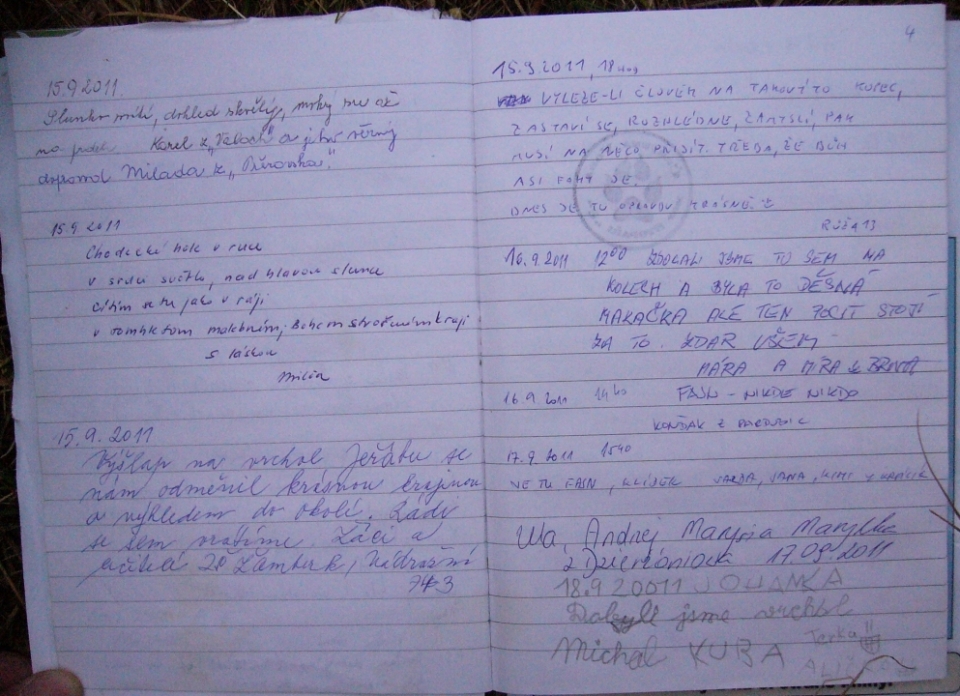 15.9.2011.
Slunko svítí, dohled skvělý, mohý me až
na prdel. Karel z „Valach“ a jeho věrný
doprovod Milada z „Pěrovska“.
15.9 2011
Chodecká hole v ruce
v srdci světlo, nad hlavou slunce
cítím se tu jak v ráji
v tomhletom malebném, Bohem stvořeném kraji
s láskou
15.9.2011
Výšlap na vrchol Jeřábu se
nám odměnil krásnou krajinou
a výhledem do okolí. Rádi
se sem vrátíme. Žáci a
učitelé ZŠ Žamberk, Nádražní
743
4
15.9 2011, 18
VYLEZE-LI ČLOVĚK NA TAKOVÝTO KOPEC,
ZASTAVÍ SE, ROZHLÉDNE, ZAMYSLÍ, PAK
MUSÍ NA NĚCO PŘIJÍT. TŘEBA, ŽE BŮH
ASI FAKT JE.
DNES JE TU OPRAVDU KRÁSNĚ.
RŮŽA 13
16.9.2011 12⁰⁰ ZDOLALI JSME TO SEM NA
KOLECH A BYLA TO DĚSNÁ
MAKAČKA ALE TEN POCIT STOJÍ
ZA TO. ZDAR VŠEM
MÁRA A MÍRA Z BRNA
16.9.2011 FAJN - NIKDE NIKDO
17.9 2011 15⁴⁰
JE TU FAJN, KLÍDEK JANA,
Ula, Andrej Marysia Marylka
z Dzierżoniowa 17.09 2011
18.9 20011 JOHANKA
Dobyli jsme vrchol
Michal KUBA Terka!!